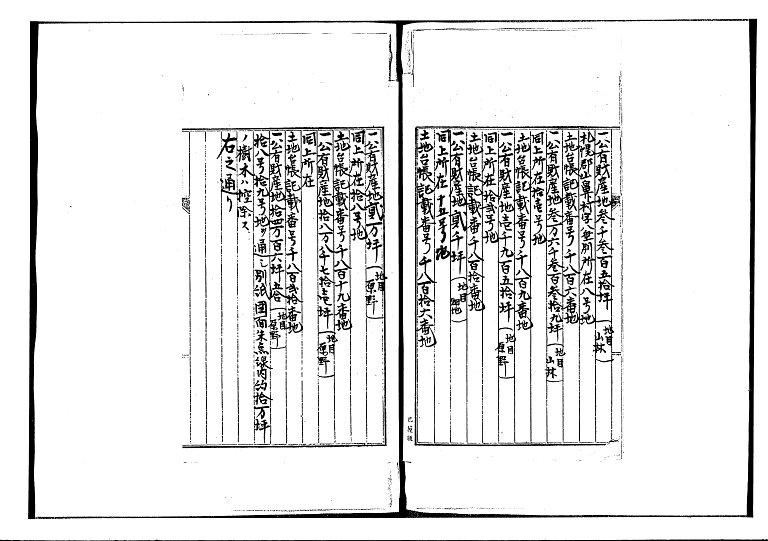 一、公有財産地参千参百五拾坪(地目山林)
札幌郡山鼻村字無別所在八号地
土地台帳記載番号千八百六番地
一、公有財産地参万六千参百参拾九坪(地目山林)
同上所在拾壱号地
土地台帳記載番号千八百九番地
一、公有財産地壱千九百五拾坪(地目原野)
同上所在拾弐号地
土地台帳記載番号千八百拾番地
一、公有財産地貳千坪(地目畑地)
同上所在十五号地
土地台帳記載番号千八百拾六番地
一、公有財産地貳万坪(地目原野)
同上所在拾八号地
土地台帳記載番号千八百十九番地
一、公有財産地拾八万八千七拾壱坪(地目原野)
同上所在
土地台帳記載番号千八百弐拾番地
一、公有財産地拾四万百六坪五合(地目原野)
拾八号拾九号地ヲ通シ別紙図面朱点線内約拾万坪
ノ樹木ハ控除ス
右之通り